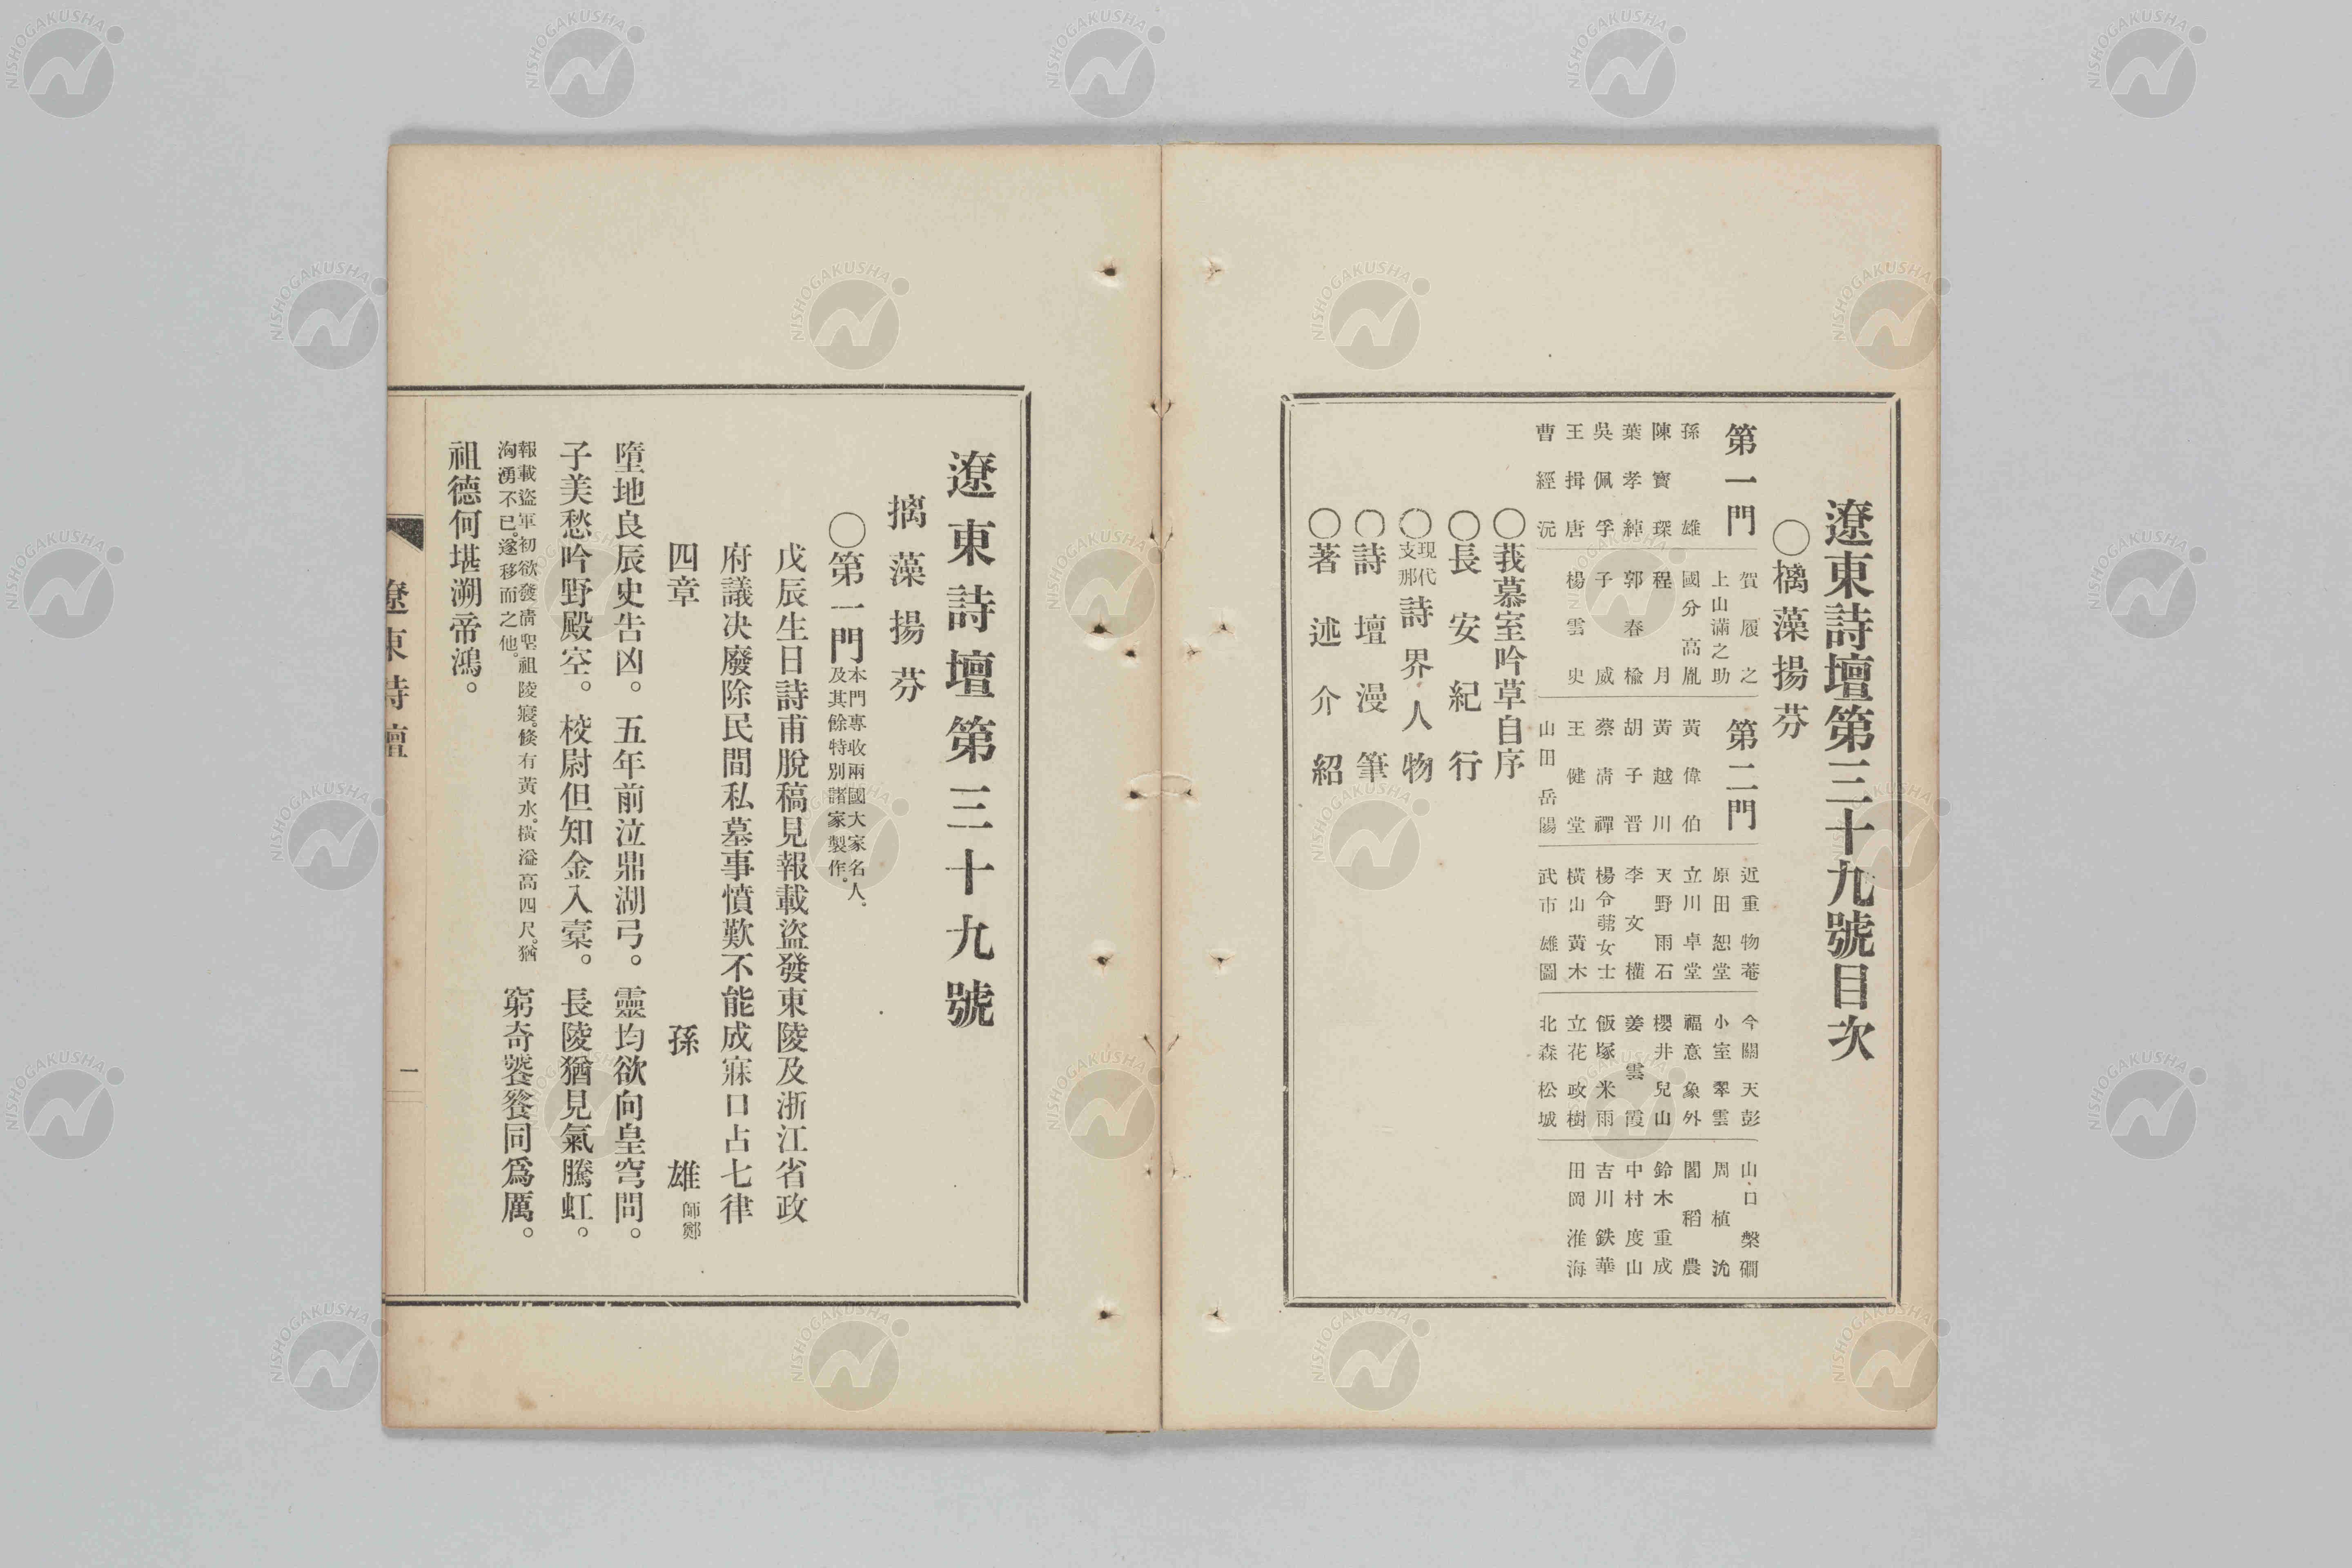 遼東詩壇第三十九號目次
〇摛藻揚芬
第一門
孫雄
陳寶琛
葉孝綽
吳佩孚
王揖唐
曹經沅
賀履之
上山滿之助
國分高胤
程月
郭春楡
子威
楊雲史
第二門
黃偉伯
黃越川
胡子晋
蔡淸禪
王健堂
山田岳陽
近重物菴
原田恕堂
立川卓堂
天野雨石
李文權
楊令茀女士
橫山黃木
武市雄圖
今關天彭
小室翠雲
福意象外
櫻井兒山
姜雲霞
飯塚米雨
立花政樹
北森松城
山口槃磵
周植沈
閻稻農
鈴木重成
中村度山
吉川鉄華
田岡淮海
〇莪慕室吟草自序
〇長安紀行
〇現代支那詩界人物
〇詩壇漫筆
〇著述介紹
遼東詩壇第三十九號
摛藻揚芬
〇第一門本門專收兩國大家名人。及其餘特別諸家製作。
戊辰生日詩甫脫稿見報載盜發東陵及浙江省政
府議决廢除民間私墓事憤歎不能成寐口占七律
四章 孫雄師鄭
墮地良辰史吿凶。五年前泣鼎湖弓。靈均欲向皇穹問。
子美愁吟野殿空。校尉但知金入橐。長陵猶見氣騰虹。
報載盜軍初欲發淸聖祖陵寢。倐有黃水。橫溢高四尺。猶洶湧不已。遂移而之他。窮奇饕餮同爲厲。
祖德何堪溯帝鴻。
遼東詩壇
一
NISHOGAKUSHA